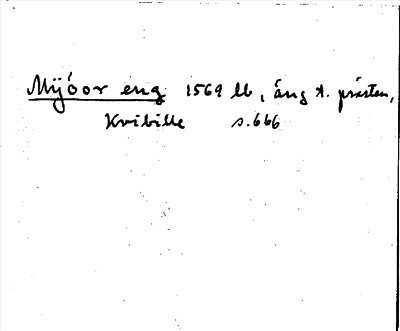 Mÿóor eng 1569 lb, äng t. prästen,
Kvibille s. 666